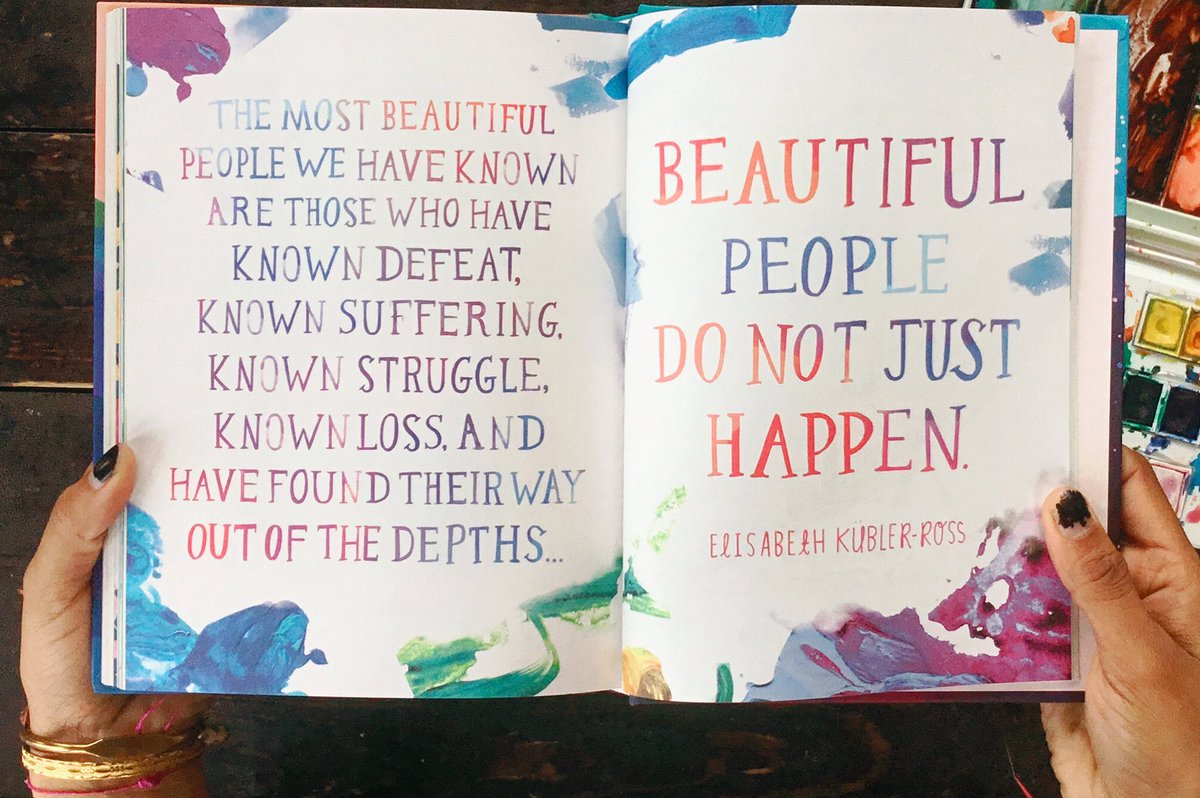 THE MOST BEAUTIFUL
PEOPLE WE HAVE KNOWN
ARE THOSE WHO HAVE
KNOWN DEFEAT,
KNOWN SUFFERING,
KNOWN STRUGGLE,
KNOWN LOSS, AND
HAVE FOUND THEIR WAY
OUT OF THE DEPTHS...
BEAUTIFUL
PEOPLE
DO NOT JUST
HAPPEN.
ELISABETH KÜBLER-ROSS